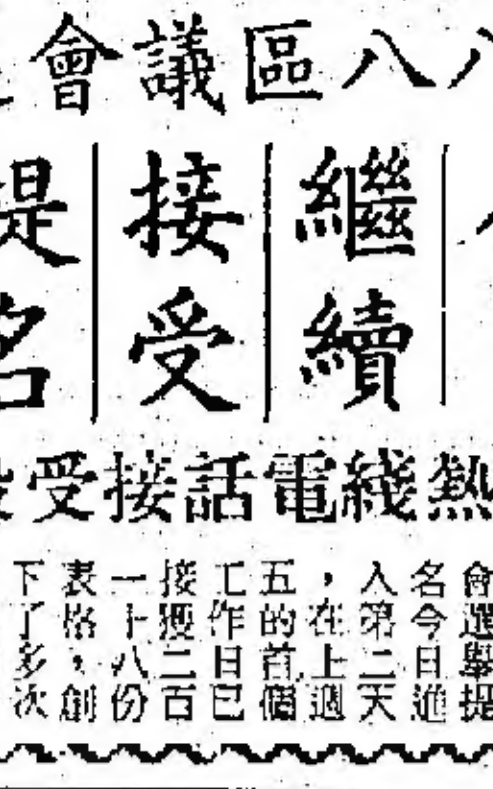 八八區議會
繼續
接受
提名
熱綫電話接受
會選舉提
名今日進
入第二天
，在上週
五的首個
工作日已
接獲二百
一十八份
表格，創
下了多次